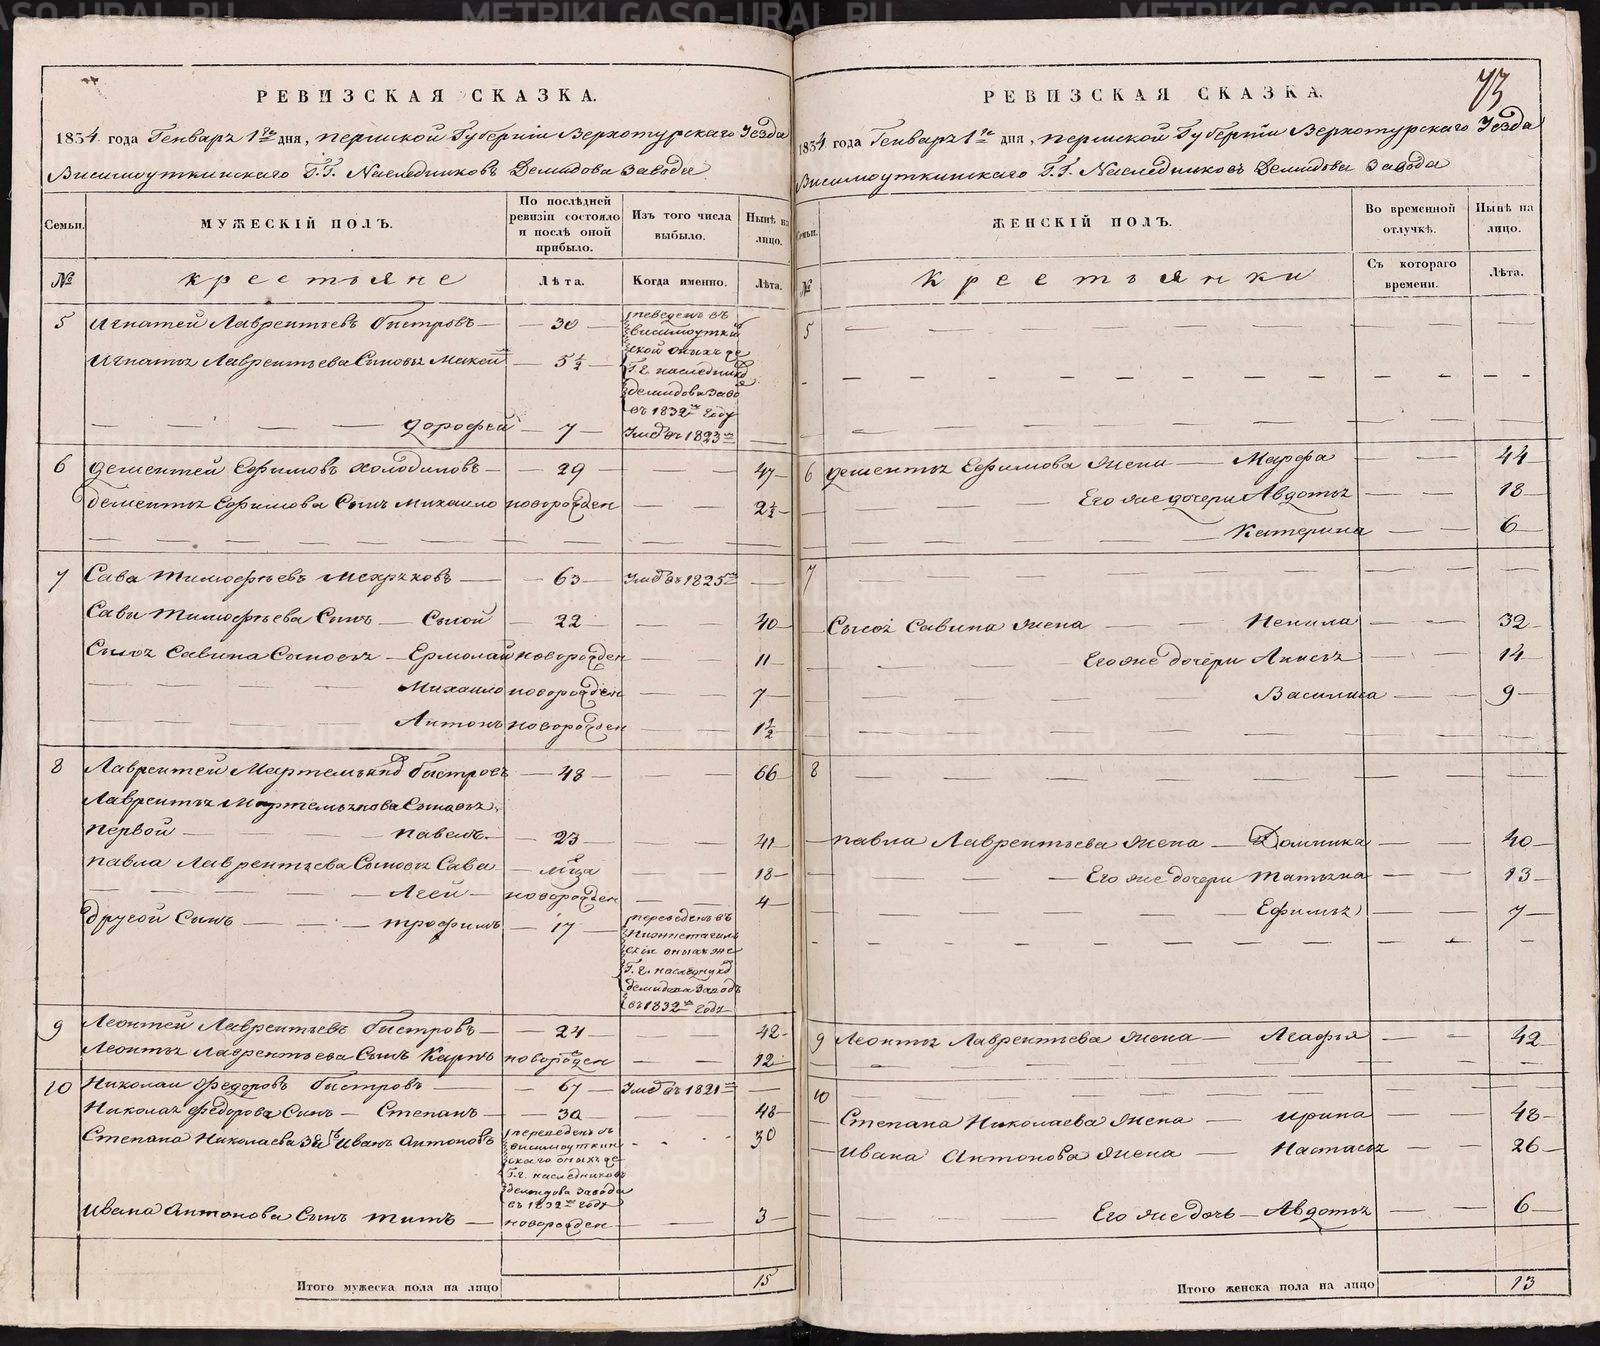 РЕВИЗСКАЯ СКАЗКА.
1834 года Генваря 1го дня, пермской Губернiи Верхотурскаго Уезда
Висимоуткинскаго Г.Г. Наследниковъ Демидова Завода
Семьи.
МУЖЕСКIЙ ПОЛЪ.
По последней ревизiи состояло и после оной прибыло.
Изъ того числа выбыло.
Ныне на лицо.
№
крестьяне
Лѣта.
Когда именно.
Лѣта.
5 Игнатей Лаврентьевъ быстровъ — 30
Игнатья Лаврентьева Сыновья Мокей — 5½
в 1832м году
дорофей — 7 — Умеръ 1823м
6 дементей Ефимовъ холодиловъ — 29 — — 47
дементья Ефимова Сынъ михаило новорожден — — 2½
7 Сава тимофеевъ — 63 — Умеръ 1825м
Савы тимофеева Сынъ — Сысой — 22 — — 40
Сысоя Савина Сыновья — Ермолай новорожден — — 11
Михаило новорожден — — 7
Антонъ новорожден — — 1½
8 Лаврентей Мартемьяновъ быстровъ — 48 — — 66
Лаврентья Мартемьянова Сыновья
первой — павелъ — 23 — — 41
павла Лаврентьева Сыновья Сава — м:ца — — 18
Агей — новорожден — — 4
другой Сынъ — трофимъ — 17
переведенъ въ
оныхъ же
Г.г. наследников
демидова заводъ
въ 1832м году
9 Леонтей Лаврентьевъ быстровъ — 24 — — 42
Леонтья Лаврентьева Сынъ Карпъ новорожден — — 12
10 Николаи федоровъ быстровъ — 67 — Умеръ 1821м
Николая федорова Сынъ — Степанъ — 30 — — 48
Степана Николаева зять Иванъ антоновъ 30
переведенъ съ
висимоуткин
скаго оныхъ же
Г.г. наследниковъ
демидова завода
въ 1832м году
Ивана антонова Сынъ титъ — новорожден — — 3
Итого мужеска пола на лицо 15
73
РЕВИЗСКАЯ СКАЗКА.
1834 года Генваря 1го дня, пермской Губернiи Верхотурскаго Уезда
Висимоуткинскаго Г.Г. Наследниковъ Демидова Завода
Семьи.
ЖЕНСКIЙ ПОЛЪ.
Во временной отлучкѣ.
Ныне на лицо.
№
крестьянки
Съ котораго времени.
Лѣта.
5
6 дементья Ефимова жена — Марфа — — 44
Его же дочери Авдотья — — 18
Катерина — — 6
7
Сысоя Савина жена — Ненила — — 32
Его же дочери Анисья — — 14
Василиса — — 9
8
павла Лаврентьева жена — Домника — 40
Его же дочери татьяна — — 13
Ефимья — — 7
9 Леонтья Лаврентьева жена — Агафья — — 42
10
Степана Николаева жена — ирина — — 48
Ивана Антонова жена — Настасья — — 26
Его же дочь — Авдотья — — 6
Итого женска пола на лицо 13
METRIKI.GASO-URAL.RU